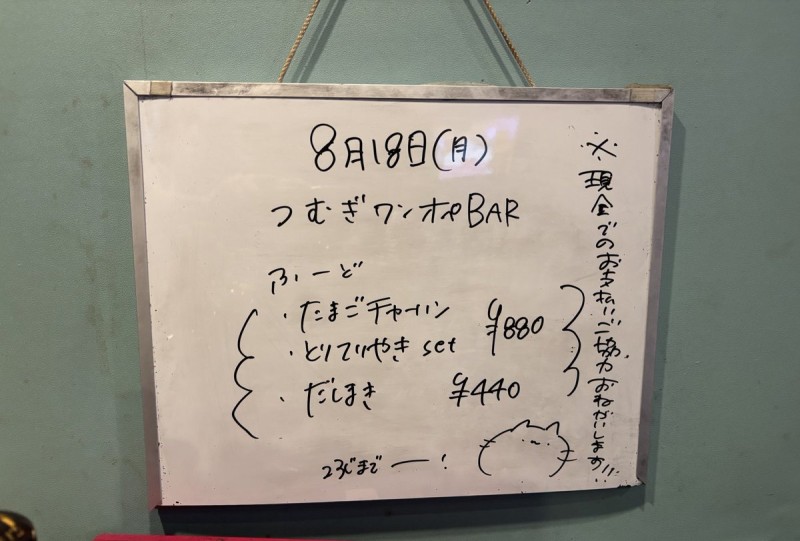 8月18日(月)
つむぎワンオペBAR
ふーど
・たまごチャーハン ¥880
・とりてりやきset
・だしまき ¥440
23じまでー!
※現金でのお支払いご協力おねがいします!!!